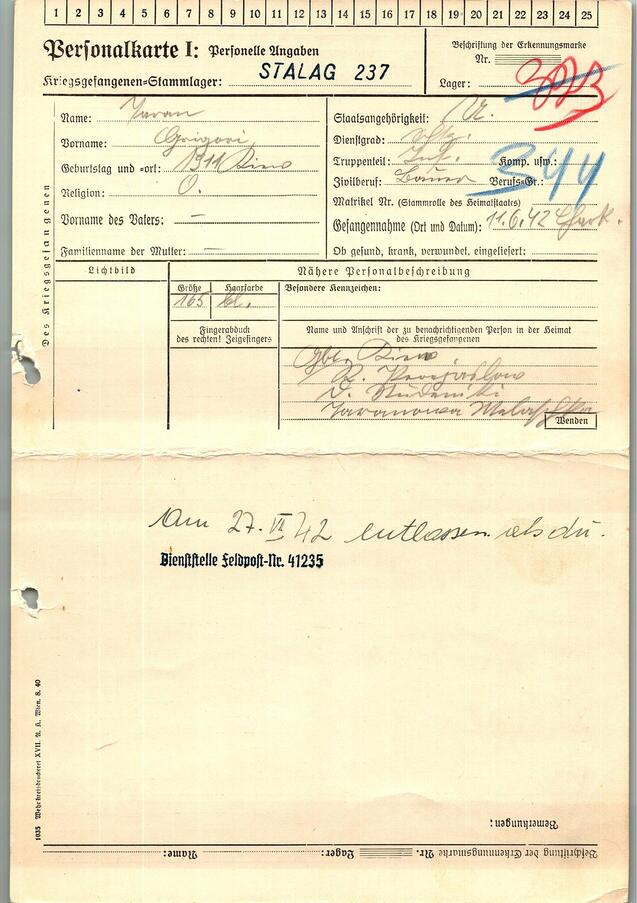 1 2 3 4 5 6 7 8 9 10 11 12 13 14 15 16 17 18 19 20 21 22 23 24 25
Personalkarte I: Personelle Angaben
Kriegsgefangenen-Stammlager: STALAG 237
Beschriftung der Erkennungsmarke
Nr.
Lager:
344
Des Kriegsgefangenen
Name: Taran
Vorname: Grigori
Geburtstag und -ort: Kiew
Religion: O.
Vorname des Vaters: —
Familienname der Mutter: —
Staatsangehörigkeit: U.
Dienstgrad:
Truppenteil: Inf. Komp. usw.:
Zivilberuf: Bauer Berufs-Gr.:
Matrikel Nr. (Stammrolle des Heimatstaates)
Gefangennahme (Ort und Datum): 11.6.42 Chark.
Ob gesund, krank, verwundet, eingeliefert:
Lichtbild
Nähere Personalbeschreibung
Größe Haarfarbe Besondere Kennzeichen:
165 bl.
Fingerabduck
des rechten! Zeigefingers
Name und Anschrift der zu benachrichtigenden Person in der Heimat
des Kriegsgefangenen
Gbt. Kiew
R. Perejaslow
D. Studeniki
Taranowa
Wenden
Am 27. VII 42 entlassen als du.
Dienststelle Feldpost-Nr. 41235
1035 Wehrkreisdruckerei XVII. A. K. Wien. 8. 40
Bemerkungen:
Beschriftung der Erkennungsmarke Nr. Lager: Name: